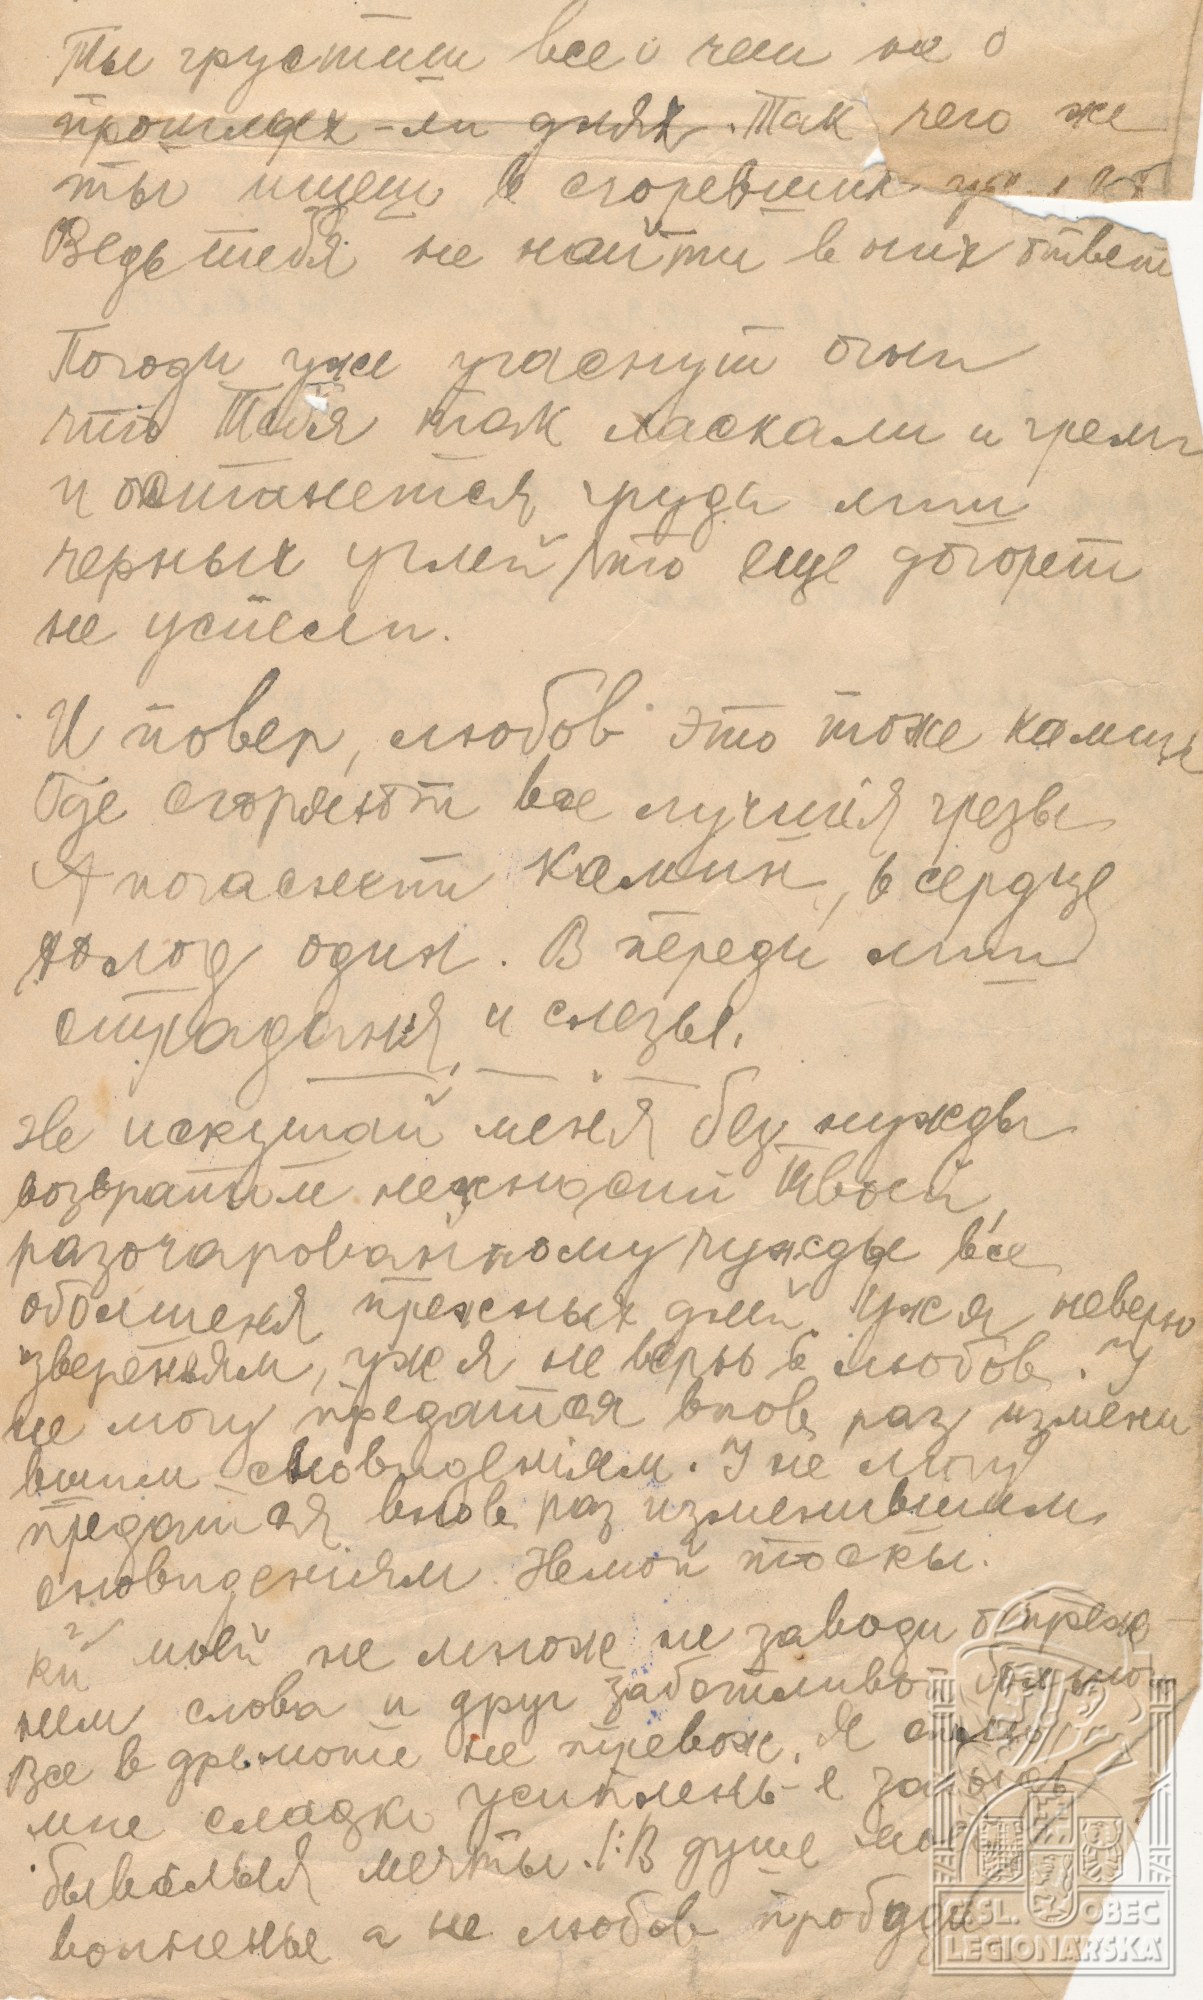 Ты грустиш все о чем не о
прошлых-ли днях. Так чего же
ты ищеш в сгоревших
Ведь тебя не найти в них ответ
Погоди уже угаснут огни
что Тебя так ласкали и грели
и останется, груда лиш
черных углей, что еще догорет
не успели.
И повер, любов это тоже камин
Где сгоряют все лучшія грезы
А погаснет камин, в сердце
холод один. В переди лиш
страданя, и слезы.
Не искушай меня без нужды
возвратим нежности Твоей,
разочарованному чужды все
оболшеня прежных дней. Уж я неверю
звереньям, уж я не верю в любов. И
не могу предатся внов, раз измени
вшим сновиденіям. И не могу
предатся внов раз изменившим,
сновиденіям. Немой тоски.
ки моей не множ не заводи о преж
нем слова и друг заботливой болного
Все в дремоте не тревож, Я сплю
мне сладко усипленье
бывалыя мечты. /:В душе моей
волненье а не любов пробуди
ČSL. OBEC
LEGIONÁŘSKÁ